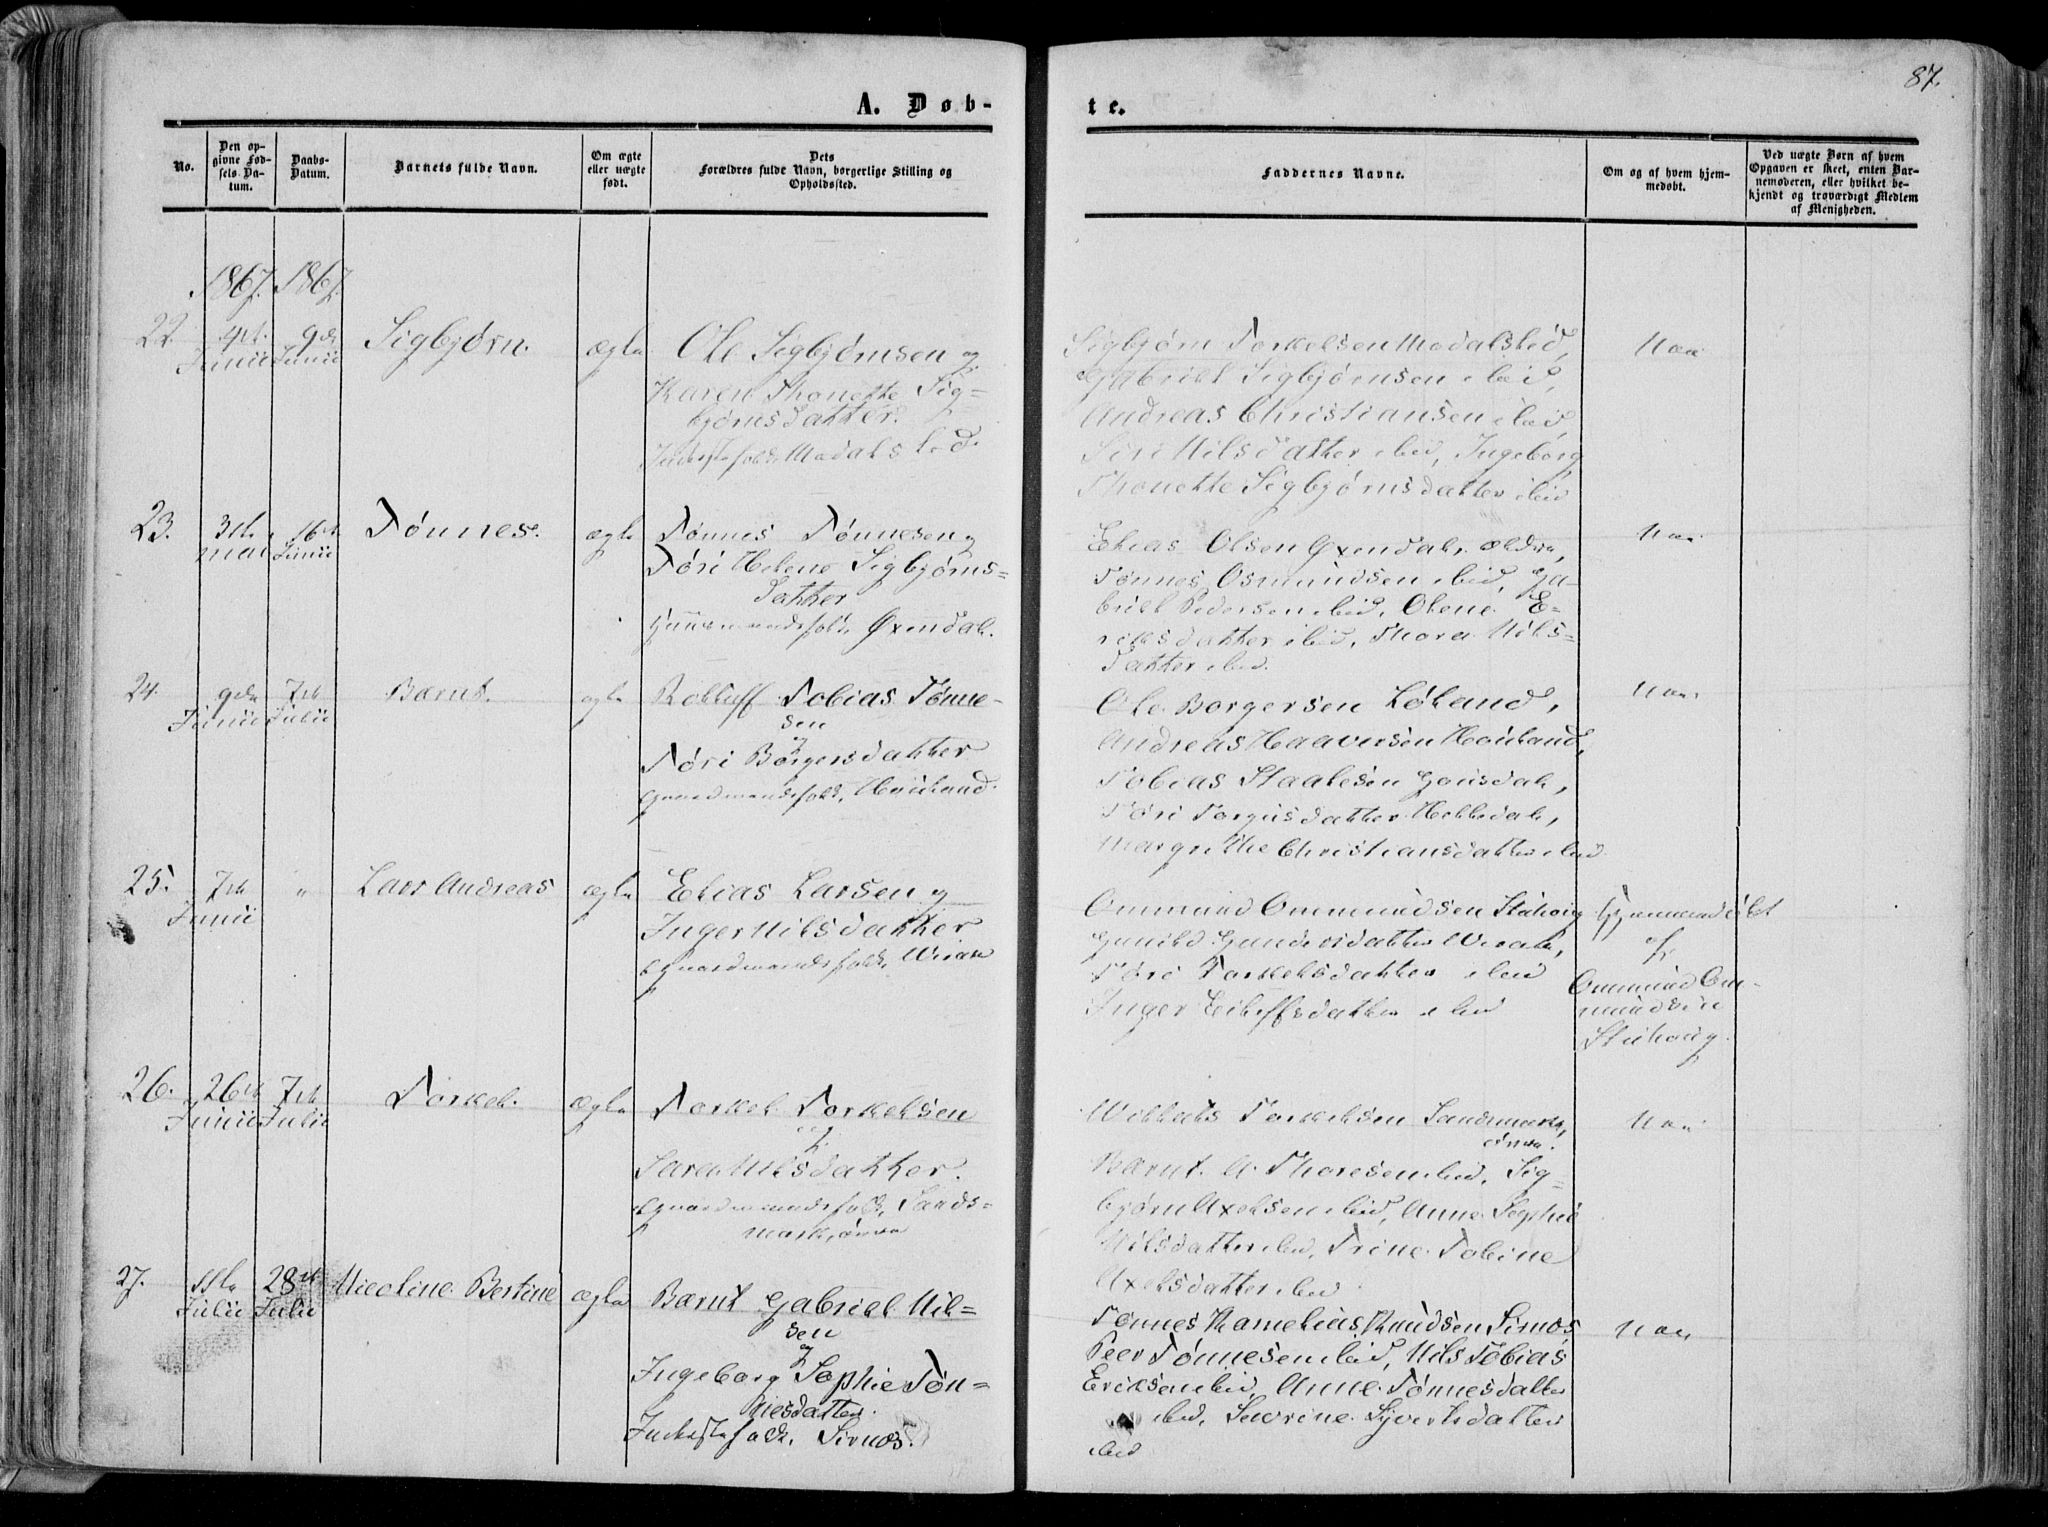 87.
A. Døb-
te.
No.
Den op-
givne Fød-
sels Da-
tum.
Daabs-
Datum.
Barnets fulde Navn.
Om ægte
eller uægte
født.
Dets
Forældres fulde Navn, borgerlige Stilling og
Opholdssted.
Faddernes Navne.
Om og af hvem hjem-
medøbt.
Ved uægte Børn af hvem
Opgaven er skeet, enten Bar-
nemoderen, eller hvilket be-
kjendt og troværdigt Medlem
af Menigheden.
1867. 1867.
22.
4de Junii
9de Junii
Sigbjørn.
ægte
Ole Sigbjørnsen og
Karen Thonette Sig=
bjørnsdatter.
Inderstefolk, Modalsled.
Sigbjørn Torkelsen Modalsled,
Gabriel Sigbjørnsen ibid,
Andreas Christiansen ibid,
Siri Nilsdatter ibid, Ingeborg
Thonette Sigbjørnsdatter ibid
Nei
23.
3die mai
16de Junii
Tønnes.
ægte
Tønnes Tønnesen og
Tøri Helene Sigbjørns=
datter
Huusmandsfolk, Øxendal.
Elias Olsen Øxendal, ældre,
Tønnes Osmundsen ibid, Ga-
briel Pedersen ibid, Olene E=
riksdatter ibid, Thora Nils=
datter ibid.
Nei
24.
9de Junii
7de Julii
Bernt.
ægte
Rolluff Tobias Tønne-
sen
og
Tøri Børgersdatter
Gaardmandsfolk, Houland.
Ole Børgersen Løland,
Andreas Haaversen Houland,
Tobias Staalesen Gousdal,
Tøri Torgusdatter Hellesdal,
Margrethe Christiansdatter ibid
Nei
25.
7de Junii
"
Lars Andreas
ægte
Elias Larsen og
Inger Nilsdatter
Gaardmandsfolk,
Ommund Ommundsen
Gunild Gundersdatter
Tøri Torkelsdatter ibid
Inger Eileffsdatter ibid
Hjemmedøbt
af
Ommund Om-
mundsen
26.
26de Junii
7de Julii
Torkel.
ægte
Torkel Torkelsen
og
Saren Nilsdatter.
Gaardmandsfolk, Sands=
mark, øvre
Torkelsen Sandsmark,
øvre.
Bernt A. Thoresen ibid, Sig-
bjørn Axelsen ibid, Anne Sophie
Nilsdatter ibid, Trine Tobine
Axelsdatter ibid
Nei
27.
11te Julii
28de Julii
Nicoline Bertine
ægte
Bernt Gabriel Nil=
sen
og
Ingeborg Sophie Tøn=
nesdatter.
Inderstefolk, Sirnæs.
Tønnes Kornelius Knudsen Sirnæs
Peer Tønnesen ibid, Nils Tobias
Eriksen ibid, Anne Tønnesdatter
ibid, Severine Syvertsdatter
ibid
Nei